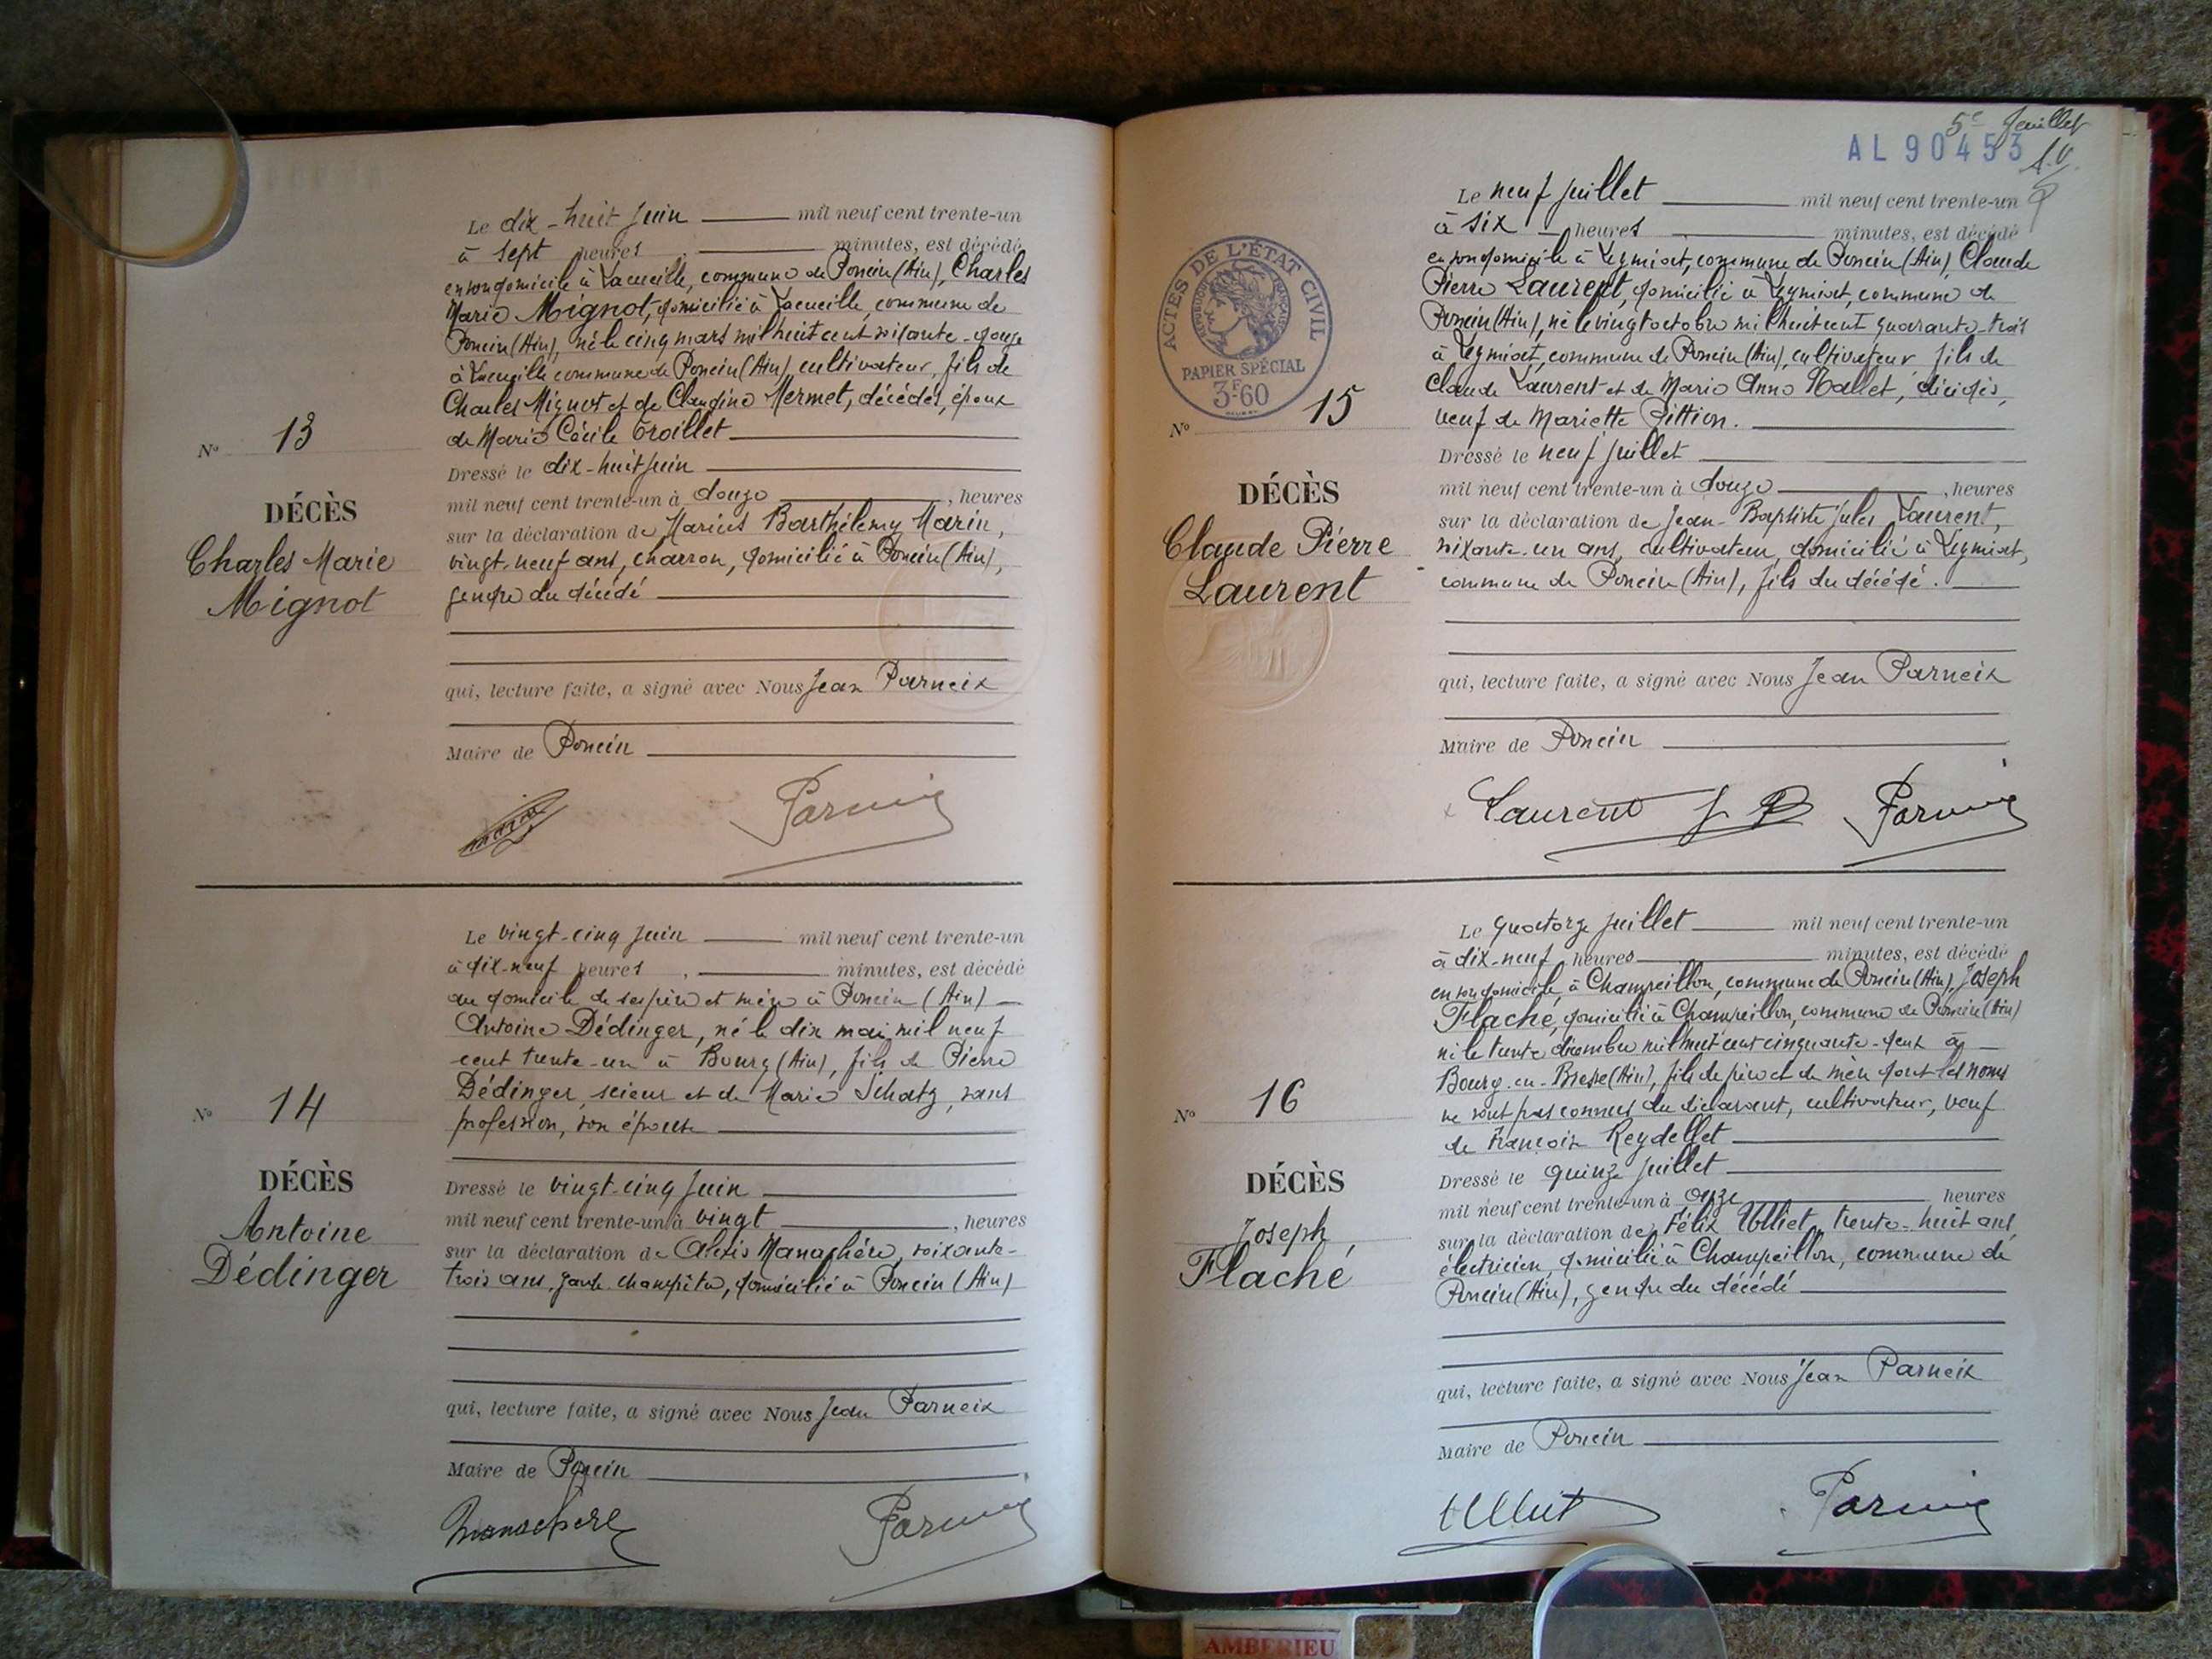 Le dix-huit juin mil neuf cent trente-un
à sept heures minutes, est décédé
en son domicile à Lacueille, commune de Poncin (Ain), Charles
Marie Mignot, domicilié à Lacueille, commune de
Poncin (Ain), né le cinq mars mil huit cent soixante-douze
à Lacueille commune de Poncin (Ain), cultivateur, fils de
Charles Mignot et de Claudine Mermet, décédés, époux
de Marie Cécile Troillet
No 13
Dressé le dix-huit juin
mil neuf cent trente-un à douze, heures
DÉCÈS
sur la déclaration de Marius Barthélemy Marin,
Charles Marie
vingt-neuf ans, charron, domicilié à Poncin (Ain),
Mignot
gendre du décédé
qui, lecture faite, a signé avec Nous Jean Parneix
Maire de Poncin
Le vingt-cinq juin mil neuf cent trente-un
à dix-neuf heures, minutes, est décédé
au domicile de ses père et mère à Poncin (Ain)
Antoine Dédinger, né le dix mai mil neuf
cent trente-un à Bourg (Ain), fils de Pierre
Dédinger, scieur et de Marie Schatz, sans
No 14
profession, son épouse
DÉCÈS
Dressé le vingt-cinq juin
Antoine
mil neuf cent trente-un à vingt, heures
sur la déclaration de Alexis Manachère, soixante-
Dédinger
trois ans, garde-champêtre, domicilié à Poncin (Ain)
qui, lecture faite, a signé avec Nous Jean Parneix
Maire de Poncin
Manachere
5e feuillet
AL 90453
Le neuf juillet mil neuf cent trente-un
à six heures minutes, est décédé
en son domicile à Leymiat, commune de Poncin (Ain) Claude
Pierre Laurent, domicilié à Leymiat, commune de
Poncin (Ain), né le vingt octobre mil huit cent quarante-trois
à Leymiat, commune de Poncin (Ain), cultivateur fils de
Claude Laurent et de Marie Anne Hallet, décédés,
veuf de Mariette Pittion.
ACTES DE L'ÉTAT CIVIL
RÉPUBLIQUE FRANÇAISE
PAPIER SPÉCIAL
3F60
No 15
Dressé le neuf juillet
mil neuf cent trente-un à douze, heures
DÉCÈS
sur la déclaration de Jean-Baptiste Jules Laurent,
Claude Pierre
soixante-un ans, cultivateur, domicilié à Leymiat,
Laurent
commune de Poncin (Ain), fils du décédé.
qui, lecture faite, a signé avec Nous Jean Parneix
Maire de Poncin
Laurent J B
Le quatorze juillet mil neuf cent trente-un
à dix-neuf heures minutes, est décédé
en son domicile, à Champeillon, commune de Poncin (Ain), Joseph
Flaché, domicilié à Champeillon, commune de Poncin (Ain)
né le trente décembre mil huit cent cinquante-deux à
Bourg-en-Bresse (Ain), fils de père et de mère dont les noms
No 16
ne sont pas connus du déclarant, cultivateur, veuf
de Françoise Reydellet
Dressé le quinze juillet
DÉCÈS
mil neuf cent trente-un à onze heures
Joseph
sur la déclaration de Félix Ulliet, trente-huit ans,
électricien, domicilié à Champeillon, commune de
Flaché
Poncin (Ain), gendre du décédé
qui, lecture faite, a signé avec Nous Jean Parneix
Maire de Poncin
Ulliet
AMBERIEU